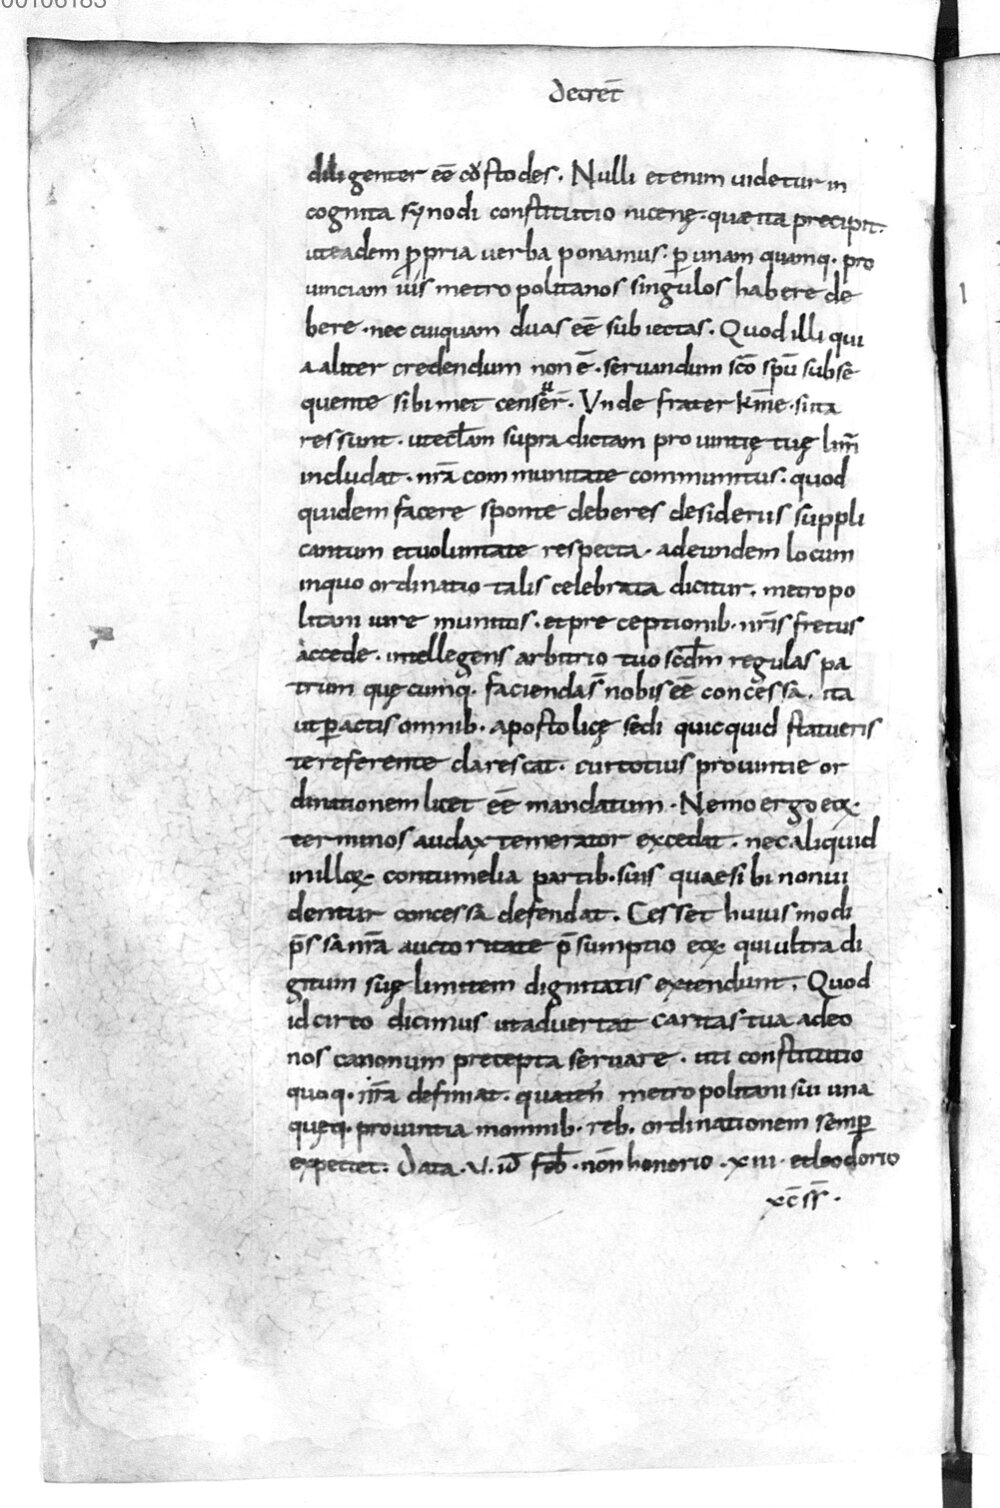 00106183
decret̄
diligenter eē custodes. Nulli etenim uidetur in
cognita synodi constitutio nicenę. quae ita precipit.
ut eadem ꝓpria uerba ponamus. ꝑ unam quamq. pro
uinciam iuīs metropolitanos singulos habere de
bere. nec cuiquam duas eē subiectas. Quod illi qui
a aliter credendum non ē. seruandum sc̄o spū subse
quente sibimet censer̄. Unde frater km̄e. si ita
res sunt. ut ecl̄am supra dictam prouintię tuę lim̄
includat. nr̄a communitate communitus. quod
quidem facere sponte deberes desideriis suppli
cantum et uoluntate respecta. ad eundem locum
in quo ordinatio talis celebrata dicitur. metropo
litani iure munitus. et preceptionib. nr̄is fretus
accede. intellegens arbitrio tuo scd̄m regulas pa
trum quęcumq. faciendas nobis eē concessa. ita
ut ꝑactis omnib. apostolicę sedi quicquid statueris
te referente clarescat. cui totius prouintie or
dinationem licet eē mandatum. Nemo ergo eoꝝ.
terminos audax temerator excedat. nec aliquid
in illoꝝ. contumelia partib. suis quae sibi non ui
dentur concessa defendat. Cesset huiusmodi
p̄ssa nr̄a auctoritate p̄sumptio eoꝝ qui ultra di
gitum suę limitem dignitatis extendunt. Quod
id circo dicimus ut aduertat caritas tua adeo
nos canonum precepta seruare. uti constitutio
quoq. nr̄a definiat. quaten̄ metropolitani sui una
quęq. prouintia in omnib. reb. ordinationem semꝑ
expectet. Data. v. id̄ feb̄. non̄ honorio. xiii. et teodorio
x c̄ss̄.